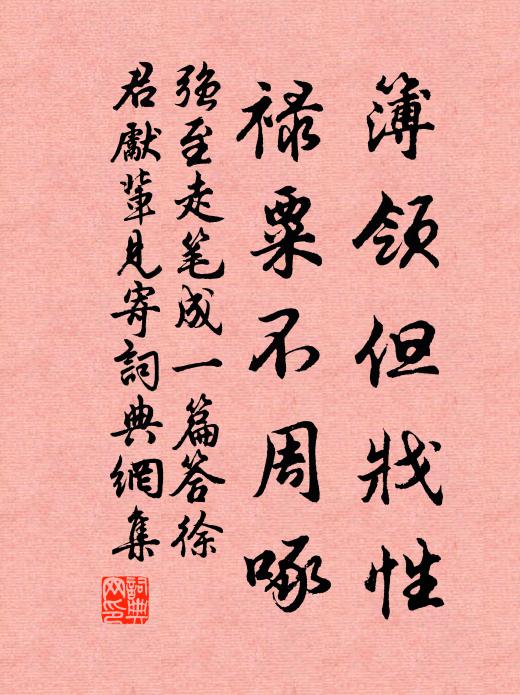 簿领但戕性
禄粟不周啄
强至走笔成一篇答徐
君献辈见寄詞典網集
詞典網印